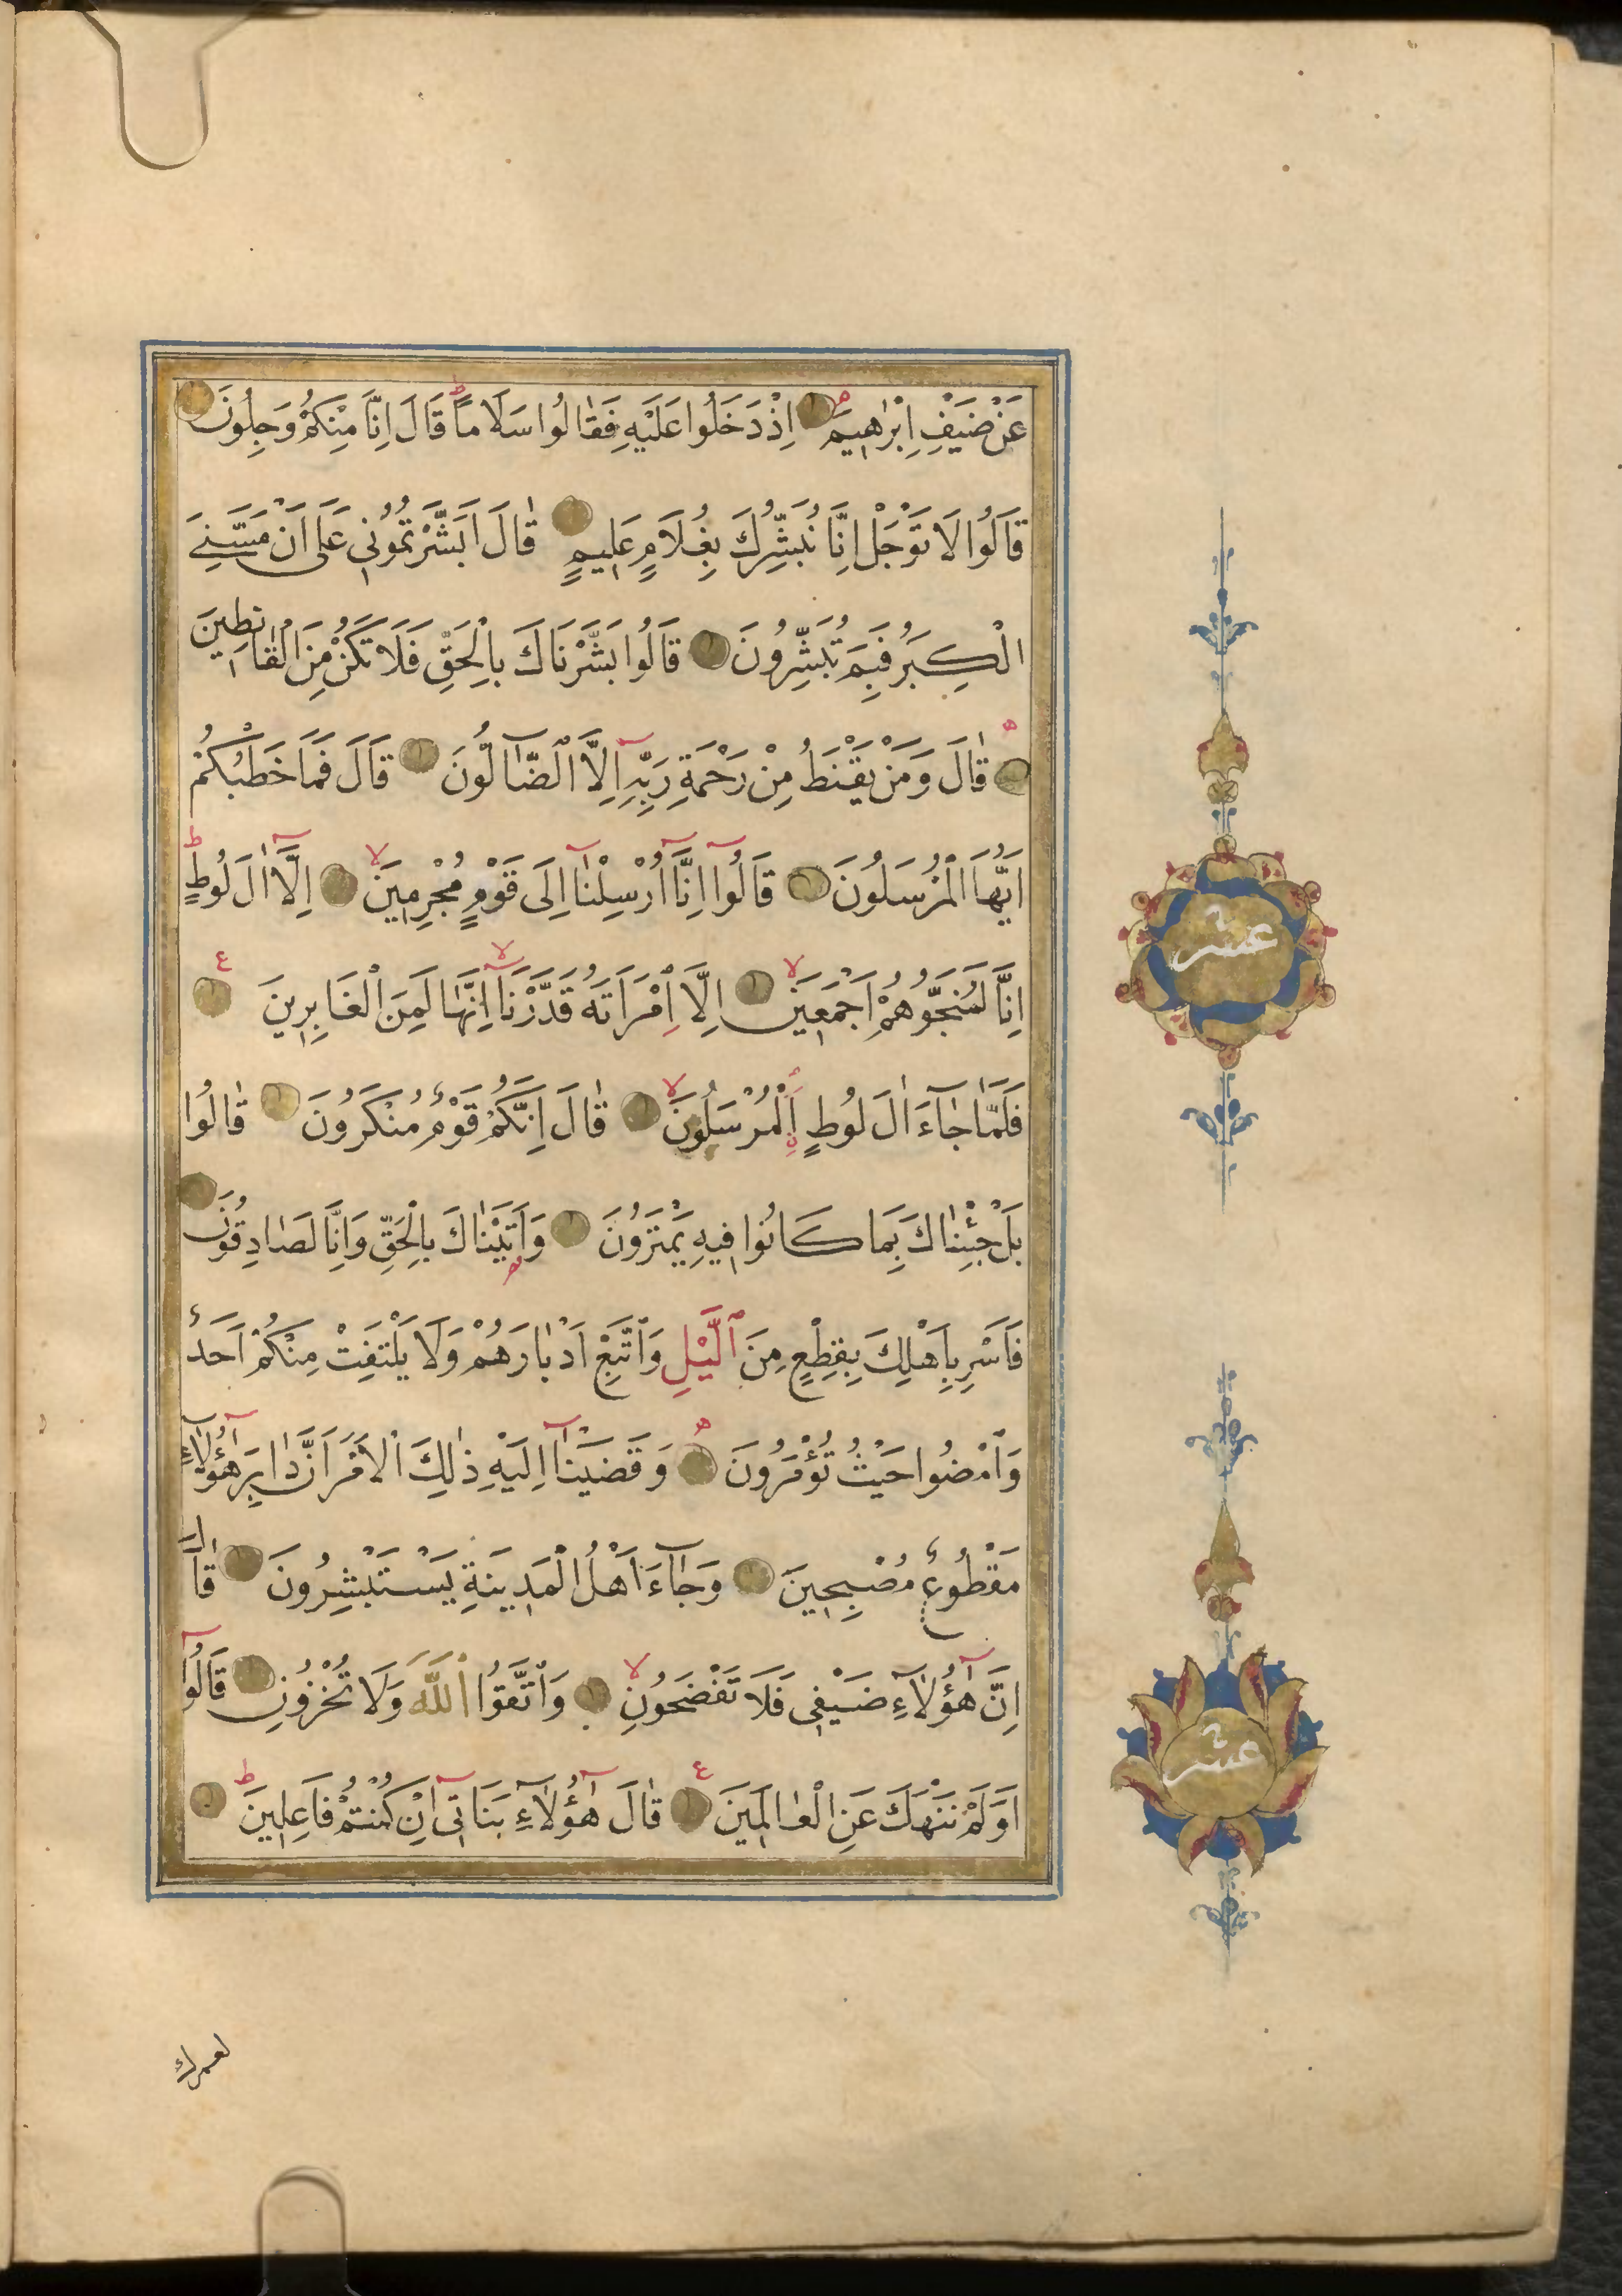 عَنْ ضَيْفِ اِبْرٰهٖيمَ اِذْ دَخَلُوا عَلَيْهِ فَقَالُوا سَلَامًا قَالَ اِنَّا مِنْكُمْ وَجِلُونَ
قَالُوا لَا تَوْجَلْ اِنَّا نُبَشِّرُكَ بِغُلَامٍ عَلٖيمٍ قَالَ اَبَشَّرْتُمُونٖى عَلٰى اَنْ مَسَّنِىَ
الْكِبَرُ فَبِمَ تُبَشِّرُونَ قَالُوا بَشَّرْنَاكَ بِالْحَقِّ فَلَا تَكُنْ مِنَ الْقَانِطٖينَ
قَالَ وَمَنْ يَقْنَطُ مِنْ رَحْمَةِ رَبِّهٖٓ اِلَّا الضَّٓالُّونَ قَالَ فَمَا خَطْبُكُمْ
اَيُّهَا الْمُرْسَلُونَ قَالُٓوا اِنَّٓا اُرْسِلْنَٓا اِلٰى قَوْمٍ مُجْرِمٖينَ اِلَّٓا اٰلَ لُوطٍ
اِنَّا لَمُنَجُّوهُمْ اَجْمَعٖينَ اِلَّا امْرَاَتَهُ قَدَّرْنَٓا اِنَّهَا لَمِنَ الْغَابِرٖينَ
فَلَمَّا جَٓاءَ اٰلَ لُوطٍ الْمُرْسَلُونَ قَالَ اِنَّكُمْ قَوْمٌ مُنْكَرُونَ قَالُوا
بَلْ جِئْنَاكَ بِمَا كَانُوا فٖيهِ يَمْتَرُونَ وَاَتَيْنَاكَ بِالْحَقِّ وَاِنَّا لَصَادِقُونَ
فَاَسْرِ بِاَهْلِكَ بِقِطْعٍ مِنَ الَّيْلِ وَاتَّبِعْ اَدْبَارَهُمْ وَلَا يَلْتَفِتْ مِنْكُمْ اَحَدٌ
وَامْضُوا حَيْثُ تُؤْمَرُونَ وَقَضَيْنَٓا اِلَيْهِ ذٰلِكَ الْاَمْرَ اَنَّ دَابِرَ هٰٓؤُلَٓاءِ
مَقْطُوعٌ مُصْبِحٖينَ وَجَٓاءَ اَهْلُ الْمَدٖينَةِ يَسْتَبْشِرُونَ قَالَ
اِنَّ هٰٓؤُلَٓاءِ ضَيْفٖى فَلَا تَفْضَحُونِ وَاتَّقُوا اللّٰهَ وَلَا تُخْزُونِ قَالُٓوا
اَوَلَمْ نَنْهَكَ عَنِ الْعَالَمٖينَ قَالَ هٰٓؤُلَٓاءِ بَنَاتٖٓى اِنْ كُنْتُمْ فَاعِلٖينَ
عشر
عشر
لعمرك